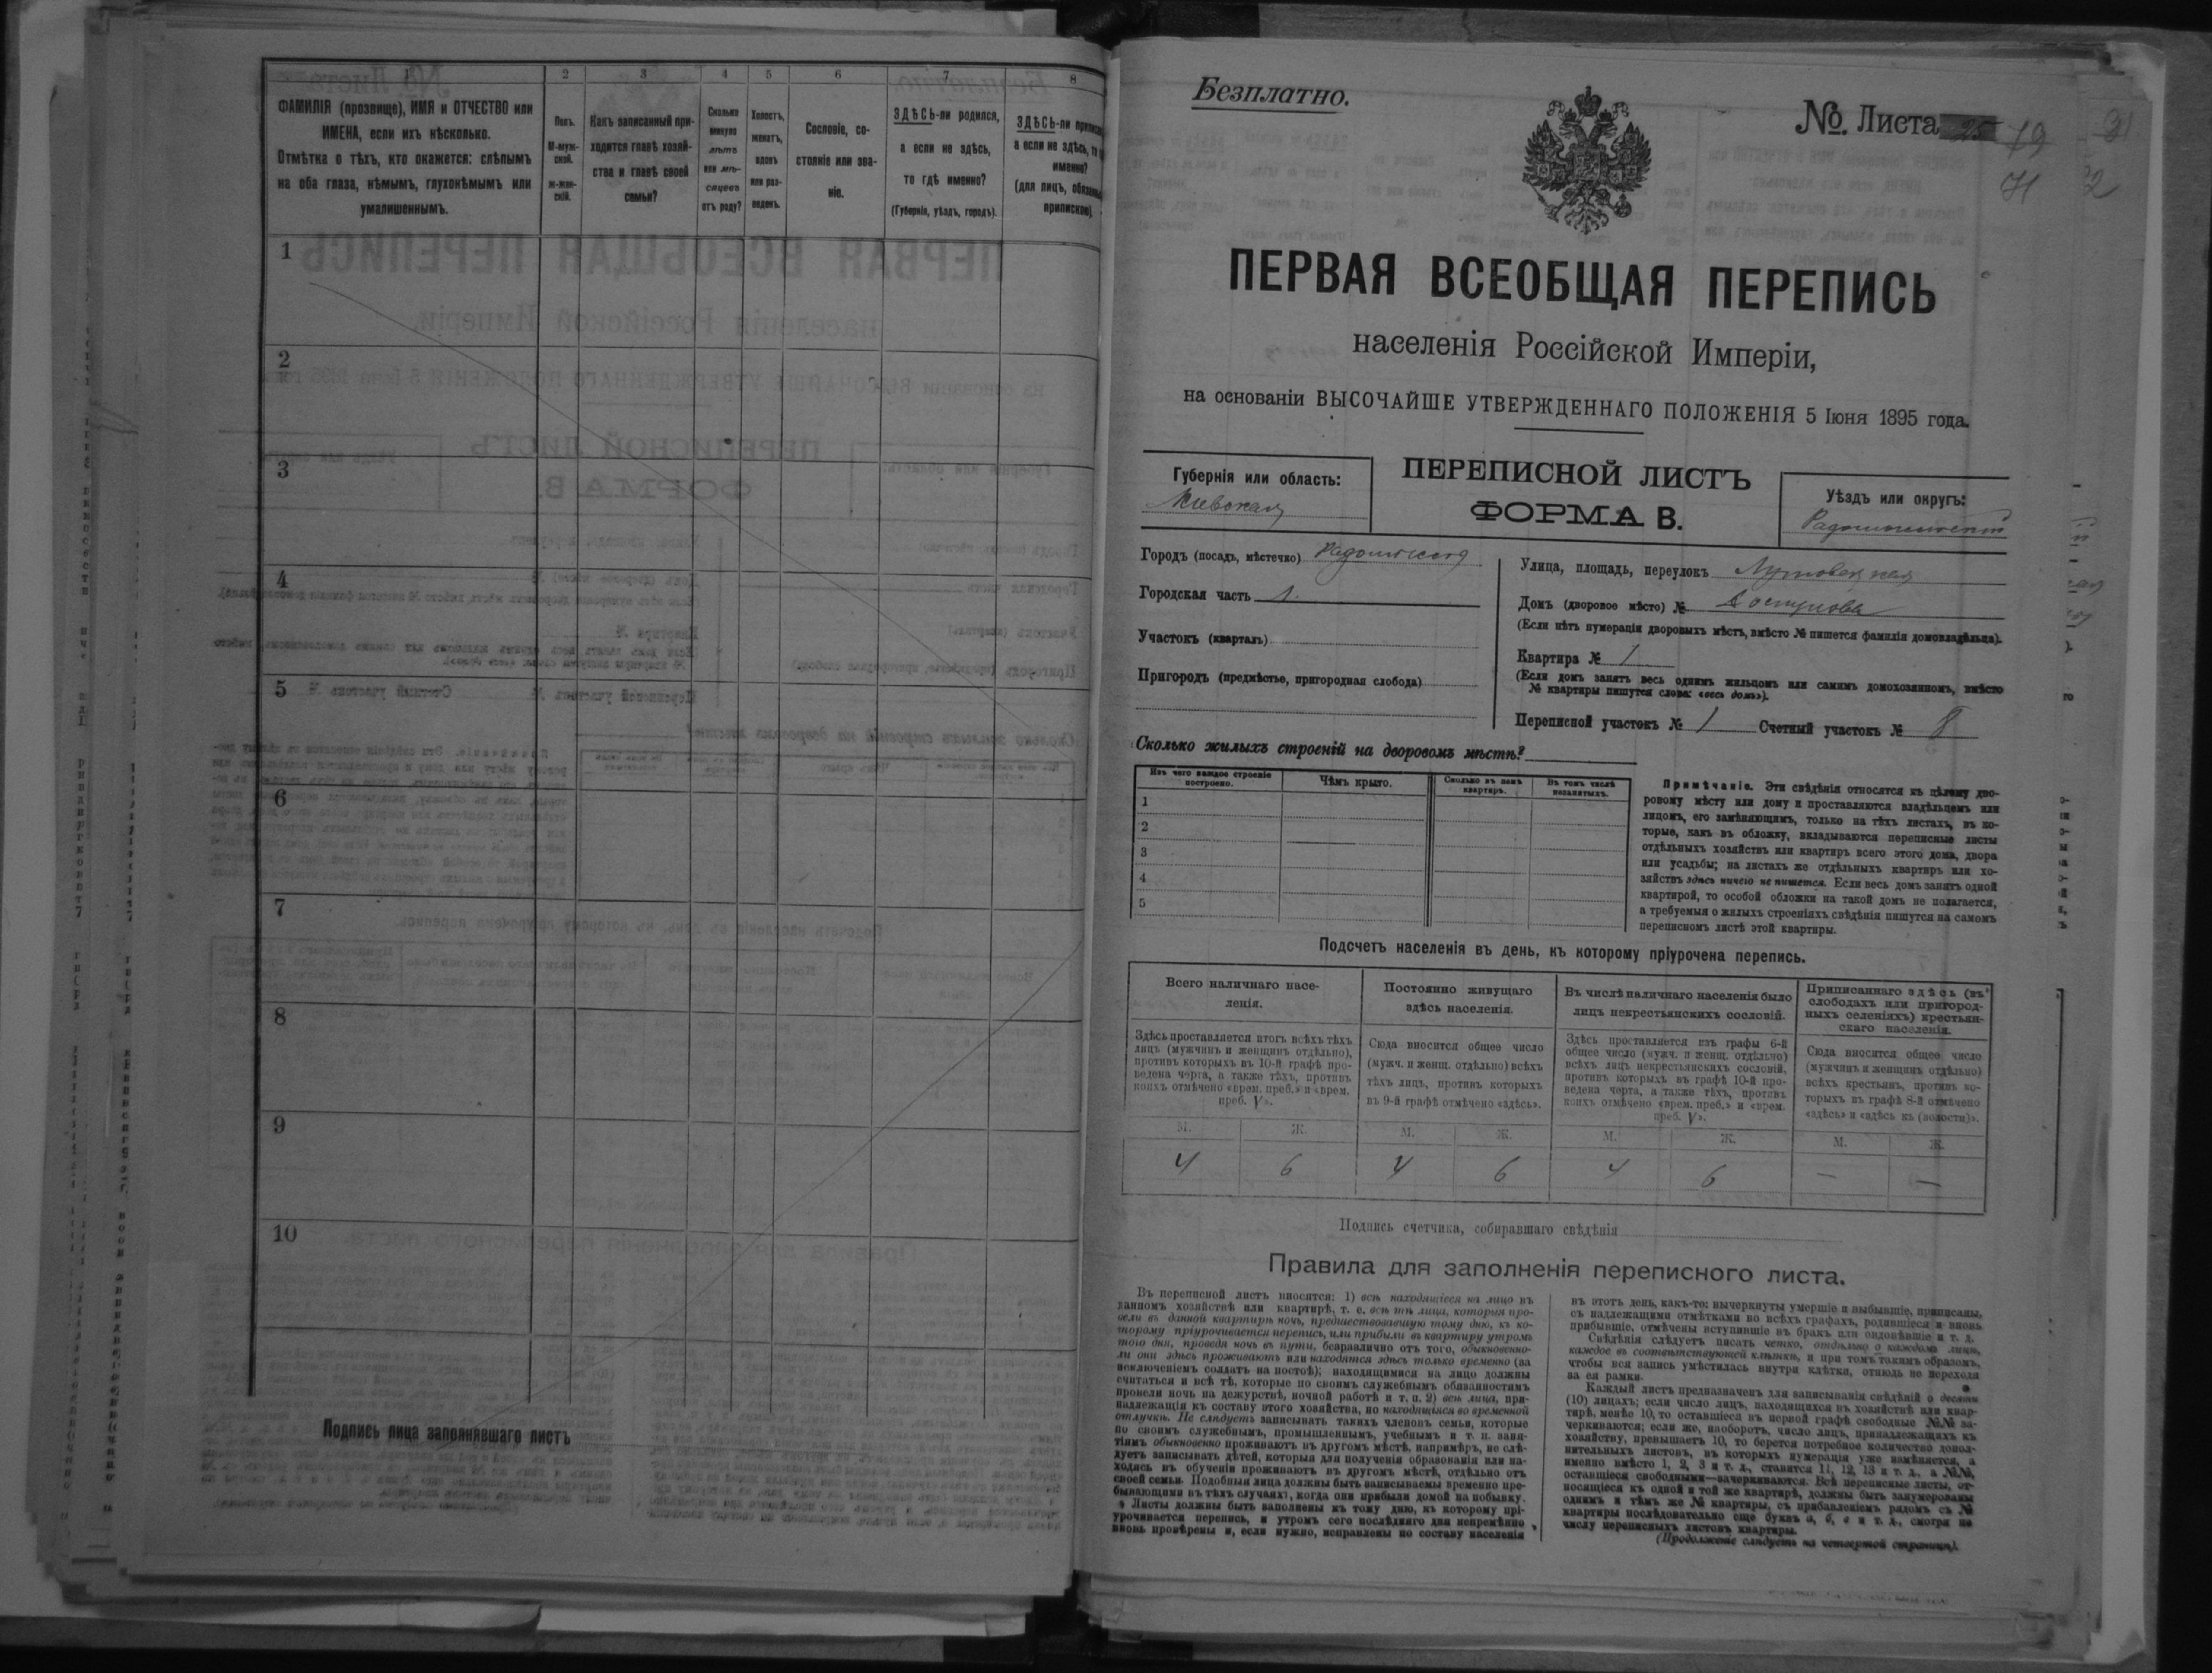 1 2 3 4 5 6 7 8
ФАМИЛІЯ (прозвище), ИМЯ и ОТЧЕСТВО или
ИМЕНА, если ихъ нѣсколько.
Отмѣтка о тѣхъ, кто окажется: слѣпымъ
на оба глаза, нѣмымъ, глухонѣмымъ или
умалишеннымъ.
Полъ.
М-муж-
ской.
ж-жен-
скій.
Какъ записанный при-
ходится главѣ хозяй-
ства и главѣ своей
семьи?
Сколько
минуло
лѣтъ
или мѣ-
сяцевъ
отъ роду?
Холостъ,
женатъ,
вдовъ
или раз-
веденъ.
Сословіе, со-
стояніе или зва-
ніе.
ЗДѢСЬ-ли родился,
а если не здѣсь,
то гдѣ именно?
(Губернія, уѣздъ, городъ).
ЗДѢСЬ-ли
а если не здѣсь, то
именно?
(для лицъ,
припискѣ)
1
2
3
4
5
6
7
8
9
10
Подпись лица заполнявшаго листъ
Безплатно.
№. Листа 25 79
71
ПЕРВАЯ ВСЕОБЩАЯ ПЕРЕПИСЬ
населенія Россійской Имперіи,
на основаніи ВЫСОЧАЙШЕ УТВЕРЖДЕННАГО ПОЛОЖЕНІЯ 5 Іюня 1895 года.
Губернія или область:
Кіевская
ПЕРЕПИСНОЙ ЛИСТЪ
ФОРМА В.
Уѣздъ или округъ:
Городъ (посадъ, мѣстечко)
Городская часть 1.
Участокъ (кварталъ)
Пригородъ (предмѣстье, пригородная слобода)
Улица, площадь, переулокъ
Домъ (дворовое мѣсто) №
(Если нѣтъ нумераціи дворовыхъ мѣстъ, вмѣсто № пишется фамилія домовладѣльца).
Квартира № 1
(Если домъ занятъ весь однимъ жильцомъ или самимъ домохозяиномъ, вмѣсто
№ квартиры пишутся слова: «весь домъ»).
Переписной участокъ № 1 Счетный участокъ № 8
Сколько жилыхъ строеній на дворовомъ мѣстѣ?
Изъ чего каждое строеніе
построено.
Чѣмъ крыто.
Сколько въ немъ
квартиръ.
Въ томъ числѣ
незанятыхъ.
1
2
3
4
5
Примѣчаніе. Эти свѣдѣнія относятся къ цѣлому дво-
ровому мѣсту или дому и проставляются владѣльцемъ или
лицомъ, его замѣняющимъ, только на тѣхъ листахъ, въ ко-
торые, какъ въ обложку, вкладываются переписные листы
отдѣльныхъ хозяйствъ или квартиръ всего этого дома, двора
или усадьбы; на листахъ же отдѣльныхъ квартиръ или хо-
зяйствъ здѣсь ничего не пишется. Если весь домъ занятъ одной
квартирой, то особой обложки на такой домъ не полагается,
а требуемыя о жилыхъ строеніяхъ свѣдѣнія пишутся на самомъ
переписномъ листѣ этой квартиры.
Подсчетъ населенія въ день, къ которому пріурочена перепись.
Всего наличнаго насе-
ленія.
Постоянно живущаго
здѣсь населенія.
Въ числѣ наличнаго населенія было
лицъ некрестьянскихъ сословій.
Приписаннаго здѣсь (въ
слободахъ или пригород-
ныхъ селеніяхъ) крестьян-
скаго населенія.
Здѣсь проставляется итогъ всѣхъ тѣхъ
лицъ (мужчинъ и женщинъ отдѣльно),
противъ которыхъ въ 10-й графѣ про-
ведена черта, а также тѣхъ, противъ
коихъ отмѣчено «врем. преб.» и «врем.
преб. V».
Сюда вносится общее число
(мужч. и женщ. отдѣльно) всѣхъ
тѣхъ лицъ, противъ которыхъ
въ 9-й графѣ отмѣчено «здѣсь».
Здѣсь проставляется изъ графы 6-й
общее число (мужч. и женщ. отдѣльно)
всѣхъ лицъ некрестьянскихъ сословій,
противъ которыхъ въ графѣ 10-й про-
ведена черта, а также тѣхъ, противъ
коихъ отмѣчено «врем. преб.» и «врем.
преб. V».
Сюда вносится общее число
(мужчинъ и женщинъ отдѣльно)
всѣхъ крестьянъ, противъ ко-
торыхъ въ графѣ 8-й отмѣчено
«здѣсь» и «здѣсь къ (волости)».
М. Ж. М. Ж. М. Ж. М. Ж.
4 6 4 6 4 6 — —
Подпись счетчика, собиравшаго свѣдѣнія
Правила для заполненія переписного листа.
Въ переписной листъ вносятся: 1) всѣ находящіеся на лицо въ
данномъ хозяйствѣ или квартирѣ, т. е. всѣ тѣ лица, которыя про-
вели въ данной квартирѣ ночь, предшествовавшую тому дню, къ ко-
торому пріурочивается перепись, или прибыли въ квартиру утромъ
того дня, проведя ночь въ пути, безразлично отъ того, обыкновенно-
ли они здѣсь проживаютъ или находятся здѣсь только временно (за
исключеніемъ солдатъ на постоѣ); находящимися на лицо должны
считаться и всѣ тѣ, которые по своимъ служебнымъ обязанностямъ
провели ночь на дежурствѣ, ночной работѣ и т. п. 2) всѣ лица, при-
надлежащія къ составу этого хозяйства, но находящіяся во временной
отлучкѣ. Не слѣдуетъ записывать такихъ членовъ семьи, которые
по своимъ служебнымъ, промышленнымъ, учебнымъ и т. п. заня-
тіямъ обыкновенно проживаютъ въ другомъ мѣстѣ, напримѣръ, не слѣ-
дуетъ записывать дѣтей, которыя для полученія образованія или на-
ходясь въ обученіи проживаютъ въ другомъ мѣстѣ, отдѣльно отъ
своей семьи. Подобныя лица должны быть записываемы временно пре-
бывающими въ тѣхъ случаяхъ, когда они прибыли домой на побывку.
Листы должны быть заполнены къ тому дню, къ которому прі-
урочивается перепись, и утромъ сего послѣдняго дня непремѣнно
вновь провѣрены и, если нужно, исправлены по составу населенія
въ этотъ день, какъ-то: вычеркнуты умершіе и выбывшіе, приписаны,
съ надлежащими отмѣтками во всѣхъ графахъ, родившіеся и вновь
прибывшіе, отмѣчены вступившіе въ бракъ или овдовѣвшіе и т. д.
Свѣдѣнія слѣдуетъ писать четко, отдѣльно о каждомъ лицѣ,
каждое въ соотвѣтствующей клѣткѣ, и при томъ такимъ образомъ,
чтобы вся запись умѣстилась внутри клѣтки, отнюдь не переходя
за ея рамки.
Каждый листъ предназначенъ для записыванія свѣдѣній о десяти
(10) лицахъ; если число лицъ, находящихся въ хозяйствѣ или квар-
тирѣ, менѣе 10, то оставшіеся въ первой графѣ свободные №№ за-
черкиваются; если же, наоборотъ, число лицъ, принадлежащихъ къ
хозяйству, превышаетъ 10, то берется потребное количество допол-
нительныхъ листовъ, въ которыхъ нумерація уже измѣняется, а
именно вмѣсто 1, 2, 3 и т. д., ставится 11, 12, 13 и т. д., а №№,
оставшіеся свободными—зачеркиваются. Всѣ переписные листы, от-
носящіеся къ одной и той же квартирѣ, должны быть занумерованы
однимъ и тѣмъ же № квартиры, съ прибавленіемъ рядомъ съ №
квартиры послѣдовательно еще буквъ а, б, в и т. д., смотря по
числу переписныхъ листовъ квартиры.
(Продолженіе слѣдуетъ на четвертой страницѣ).